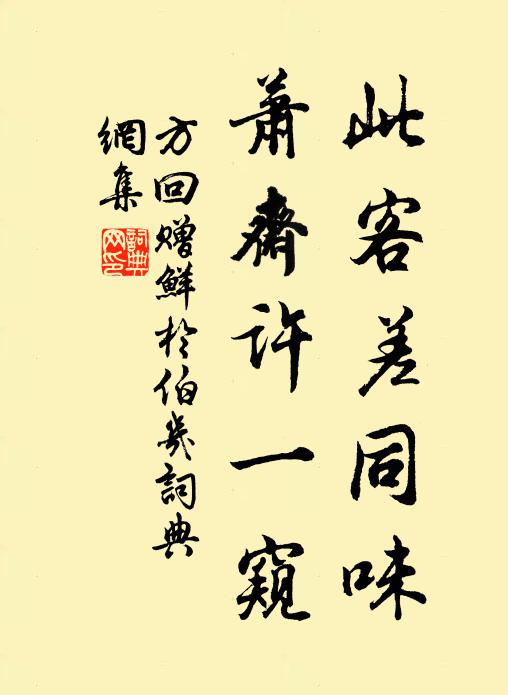 此客差同味
萧齋許一窺
方回赠鮮於伯幾詞典
網集
詞典
网印